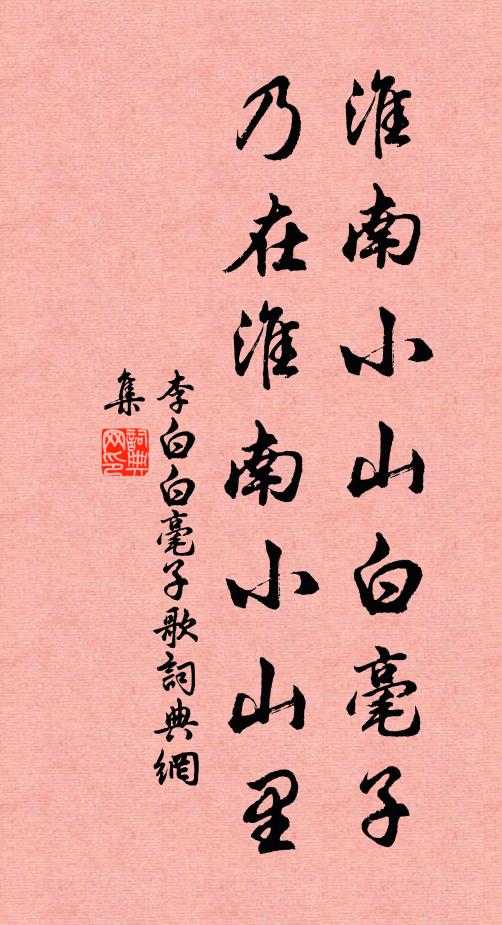 淮南小山白毫子
乃在淮南小山里
李白白毫子歌詞典網
集
詞典
网印